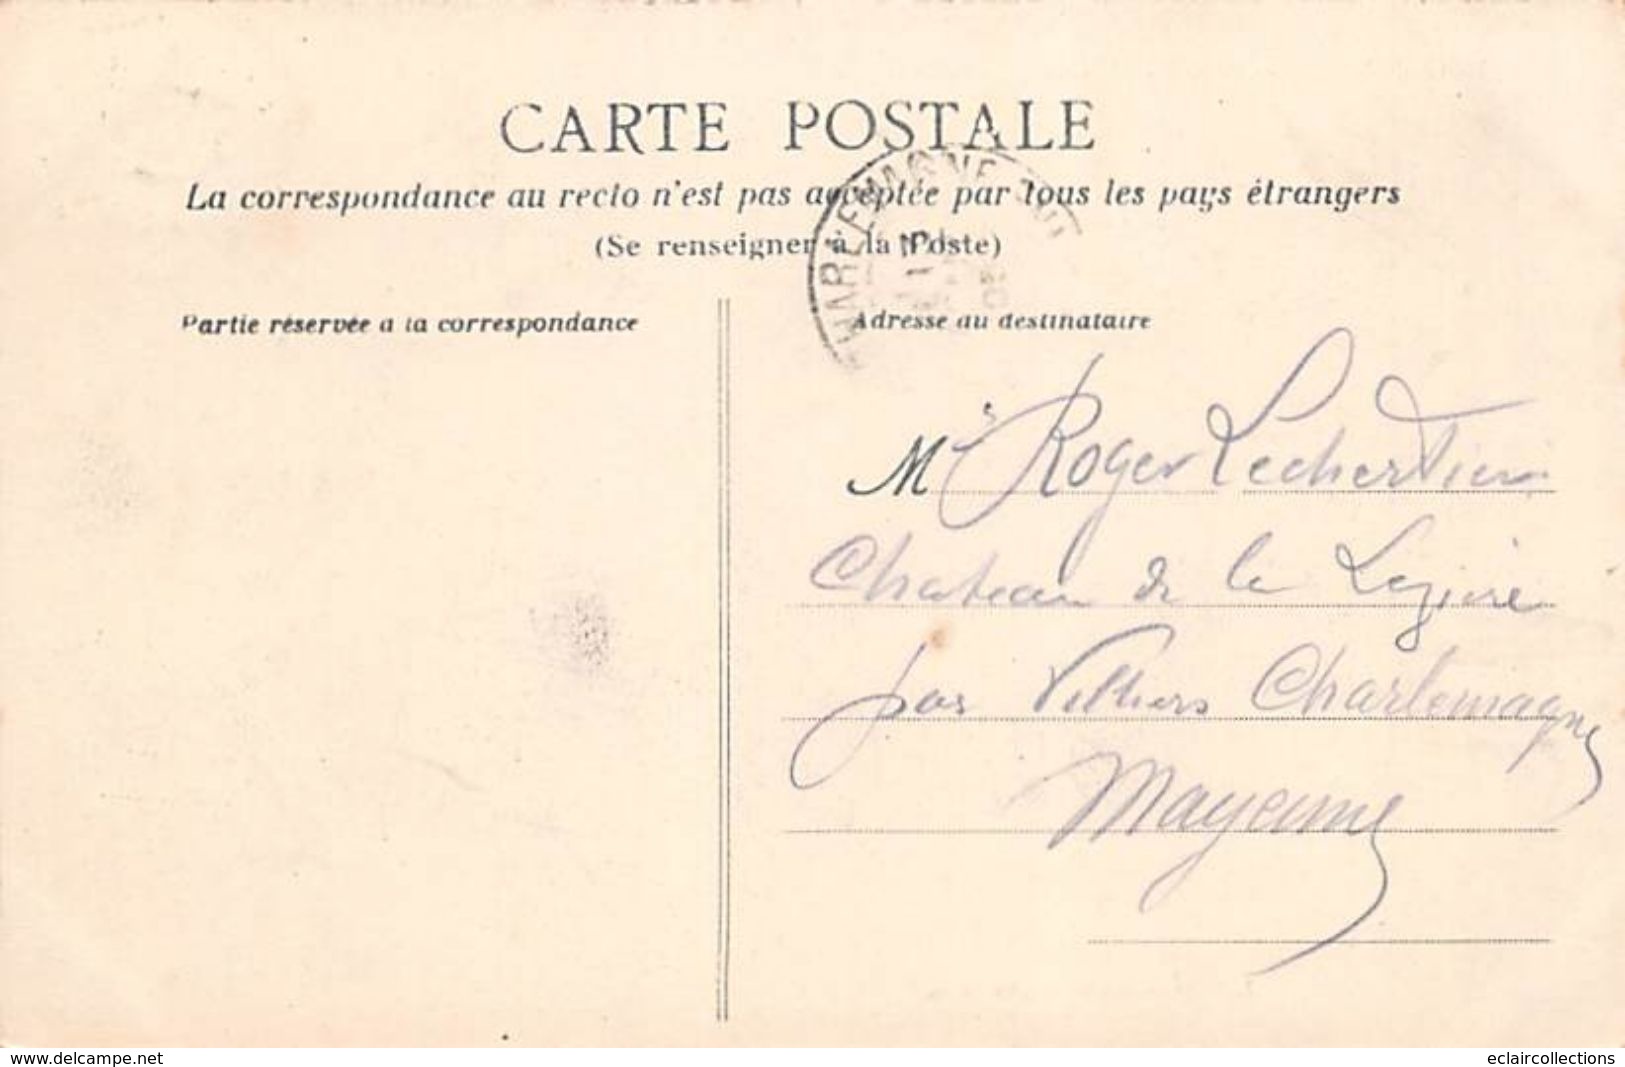 CARTE POSTALE
La correspondance au recto n'est pas acceptée par tous les pays étrangers
(Se renseigner à la Poste)
Partie réservée à la correspondance
Adresse du destinataire
M Roger Lechertier
Chateau de la
par Villiers Charlemagne
Mayenne
www.delcampe.net
eclaircollections